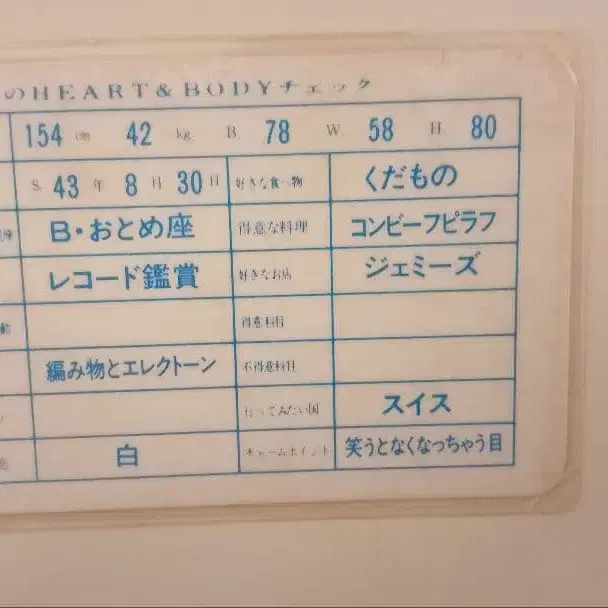 のHEART&BODYチェック
154 cm 42 kg B. 78 W. 58 H. 80
S. 43 年 8 月 30 日 好きな食べ物 くだもの
座 B・おとめ座 得意な料理 コンビーフピラフ
レコード鑑賞 好きなお店 ジェミーズ
動 得意科目
編み物とエレクトーン 不得意科目
行ってみたい国 スイス
白 チャームポイント 笑うとなくなっちゃう目